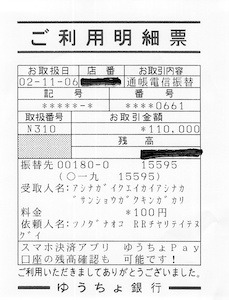 ご利用明細票
お取扱日 店番 お取引内容
02-11-06 通帳電信振替
記号 番号
*****-* ****0661
取扱番号 お取引金額
N310 *110,000
残高
振替先00180-0 15595
(〇一九 15595)
受取人名:アシナガイクエイカイアシナカ
゛サンショウガクキンガカリ
料金 *100円
依頼人名:ソノダナオコ RRチャリテイテヌ
グイ
スマホ決済アプリ ゆうちょPay
口座の残高確認も 可能です!
ご利用いただきましてありがとうございました。
ゆうちょ銀行